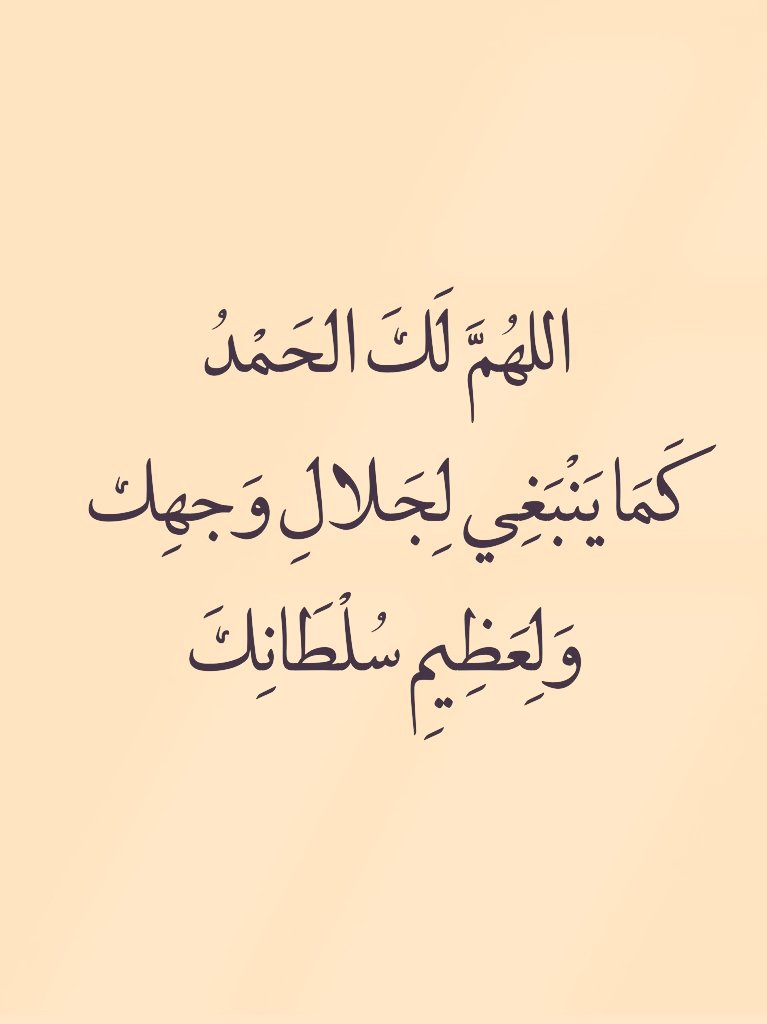 اللهُمَّ لَكَ الحَمْدُ
كَمَا يَنْبَغِي لِجَلالِ وَجهِك
وَلِعَظِيمِ سُلْطَانِكَ